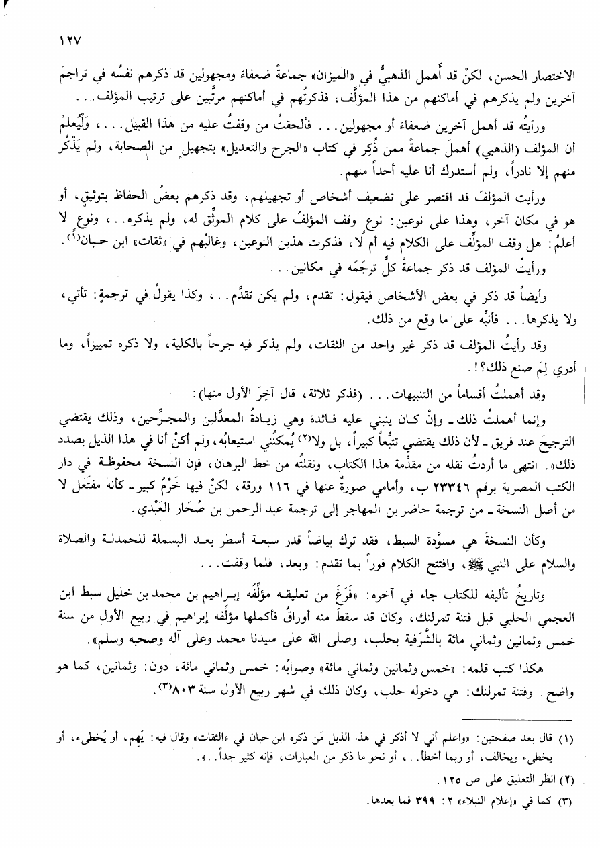 ١٢٧
الاختصار الحسن، لكنْ قد أَهمل الذهبيُّ في «الميزان» جماعةً ضعفاءَ ومجهولين قد ذكرهم نفسُه في تراجمِ
آخرين ولم يذكرهم في أماكنهم من هذا المؤلَّف، فذكرتُهم في أماكنهم مرتَّبين على ترتيب المؤلف...
ورأيتُه قد أهمل آخرين ضعفاءَ أو مجهولين... فألحقتُ من وقفتُ عليه من هذا القبيل...، وَلْيُعلمْ
أن المؤلف (الذهبي) أهملَ جماعةً ممن ذُكِر في كتاب «الجرح والتعديل» بتجهيلٍ من الصحابة، ولم يَذْكُر
منهم إلا نادراً، ولم أستدرك أنا عليه أحداً منهم.
ورأيت المؤلفَ قد اقتصر على تضعيف أشخاص أو تجهيلهم، وقد ذكرهم بعضُ الحفاظ بتوثيقٍ، أو
هو في مكان آخر، وهذا على نوعين: نوعٍ وقف المؤلفُ على كلام الموثِّق له، ولم يذكره..، ونوعٍ لا
أعلمُ: هل وقف المؤلِّف على الكلام فيه أم لا، فذكرت هذين النوعين، وغالبُهم في «ثقات» ابن حبان(١).
ورأيتُ المؤلف قد ذكر جماعةً كلٌّ ترجَمَه في مكانين...
وأيضاً قد ذكر في بعض الأشخاص فيقول: تقدم، ولم يكن تقدَّم...، وكذا يقولُ في ترجمةٍ: تأتي،
ولا يذكرها... فأنبِّه على ما وقع من ذلك.
وقد رأيتُ المؤلف قد ذكر غير واحد من الثقات، ولم يذكر فيه جرحاً بالكلية، ولا ذكره تمييزاً، وما
أدري لِمَ صنع ذلك؟!.
وقد أهملتُ أقساماً من التنبيهات... (فذكر ثلاثة، قال آخِرَ الأول منها):
وإنما أهملتُ ذلك ـ وإنْ كـان ينبني عليه فـائدة وهي زيـادةُ المعدِّلـين والمجـرِّحين، وذلك يقتضي
الترجيحَ عند فريق ـ لأن ذلك يقتضي تتبُّعاً كبيراً، بل ولا(٢) يُمكنُني استيعابُه، ولم أكنْ أنا في هذا الذيل بصدد
ذلك». انتهى ما أردتُ نقله من مقدِّمة هذا الكتاب، ونقلتُه من خط البرهان، فإن النسخة محفوظة في دار
الكتب المصرية برقم ٢٣٣٤٦ ب، وأمامي صورةٌ عنها في ١١٦ ورقة، لكنْ فيها خَرْمٌ كبير ـ كأنه مفتَعل لا
من أصل النسخة ـ من ترجمة حاضر بن المهاجر إلى ترجمة عبد الرحمن بن صُحَار العَبْدي.
وكأن النسخةَ هي مسوَّدة السبط، فقد ترك بياضاً قدر سبعـة أسطُر بعـد البسملة للحمدلـة والصلاة
والسلام على النبي ﷺ، وافتتح الكلام فوراً بما تقدم: وبعد، فلما وقفت...
وتاريخُ تأليفه للكتاب جاء في آخره: «فَرَغَ من تعليقه مؤلِّفُه إبراهيم بن محمد بن خليل سبط ابن
العجمي الحلبي قبل فتنة تمرلنك، وكان قد سقط منه أوراقٌ فأكملها مؤلِّفه إبراهيم في ربيع الأول من سنة
خمس وثمانين وثماني مائة بالشَّرَفية بحلب، وصلى الله على سيدنا محمد وعلى آله وصحبه وسلم».
هكذا كتب قلمه: «خمس وثمانين وثماني مائة» وصوابُه: خمس وثماني مائة، دون: وثمانين، كما هو
واضح. وفتنة تمرلنك: هي دخوله حلب، وكان ذلك في شهر ربيع الأول سنة ٨٠٣(٣).
(١) قال بعد صفحتين: «واعلم أني لا أذكر في هذا الذيل مَن ذكره ابن حبان في «الثقات» وقال فيه: يَهِم، أو يُخطىء، أو
يخطىء ويخالف، أو ربما أخطأ..، أو نحو ما ذكر من العبارات، فإنه كثير جداً..».
(٢) انظر التعليق على ص ١٢٥.
(٣) كما في «إعلام النبلاء» ٢: ٣٩٩ فما بعدها.